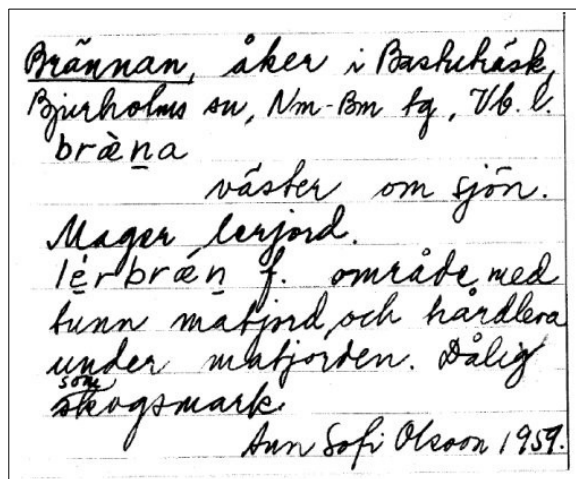 Brännan, åker i Bastuträsk,
Bjurholms sn, Nm-Bm tg, Vb. l.
bræ̀n̲a
väster om sjön.
Mager lerjord.
lé̲rbrǽn̲ f. område med
tunn matjord och hårdlera
under matjorden. Dålig
som
skogsmark.
Ann Sofi Olsson 1959.